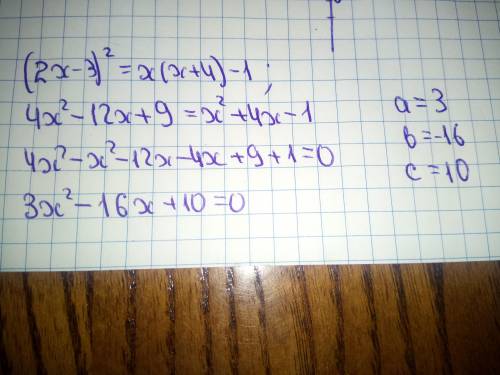 (2x-3)² = x(x+4)-1;
4x²-12x+9 = x²+4x-1
4x²-x²-12x-4x+9+1=0
3x²-16x+10=0
a=3
b=-16
c=10